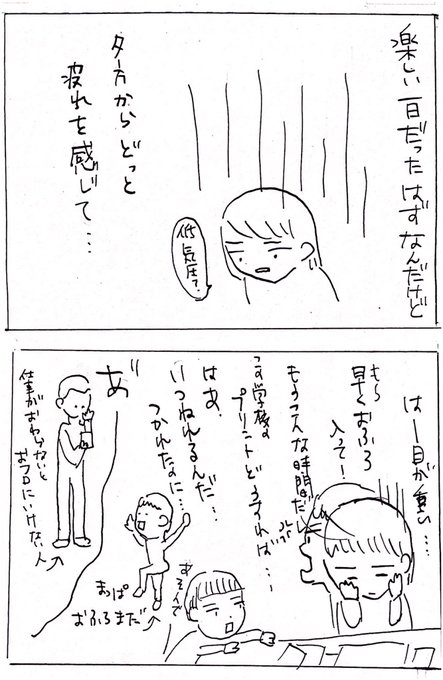 楽しい一日だったはずなんだけど
夕方からどっと
疲れを感じて…
低気圧？
はー目が重い…
もら
早くおふろ
入って！
もうこんな時間だし
プリントどうすれば…
はぁ、
いつねれるんだ…
つかれたよに…
あそんで
まっぱ
おふろまだ
あ゛
仕事がおわらないと
おフロにいけない人